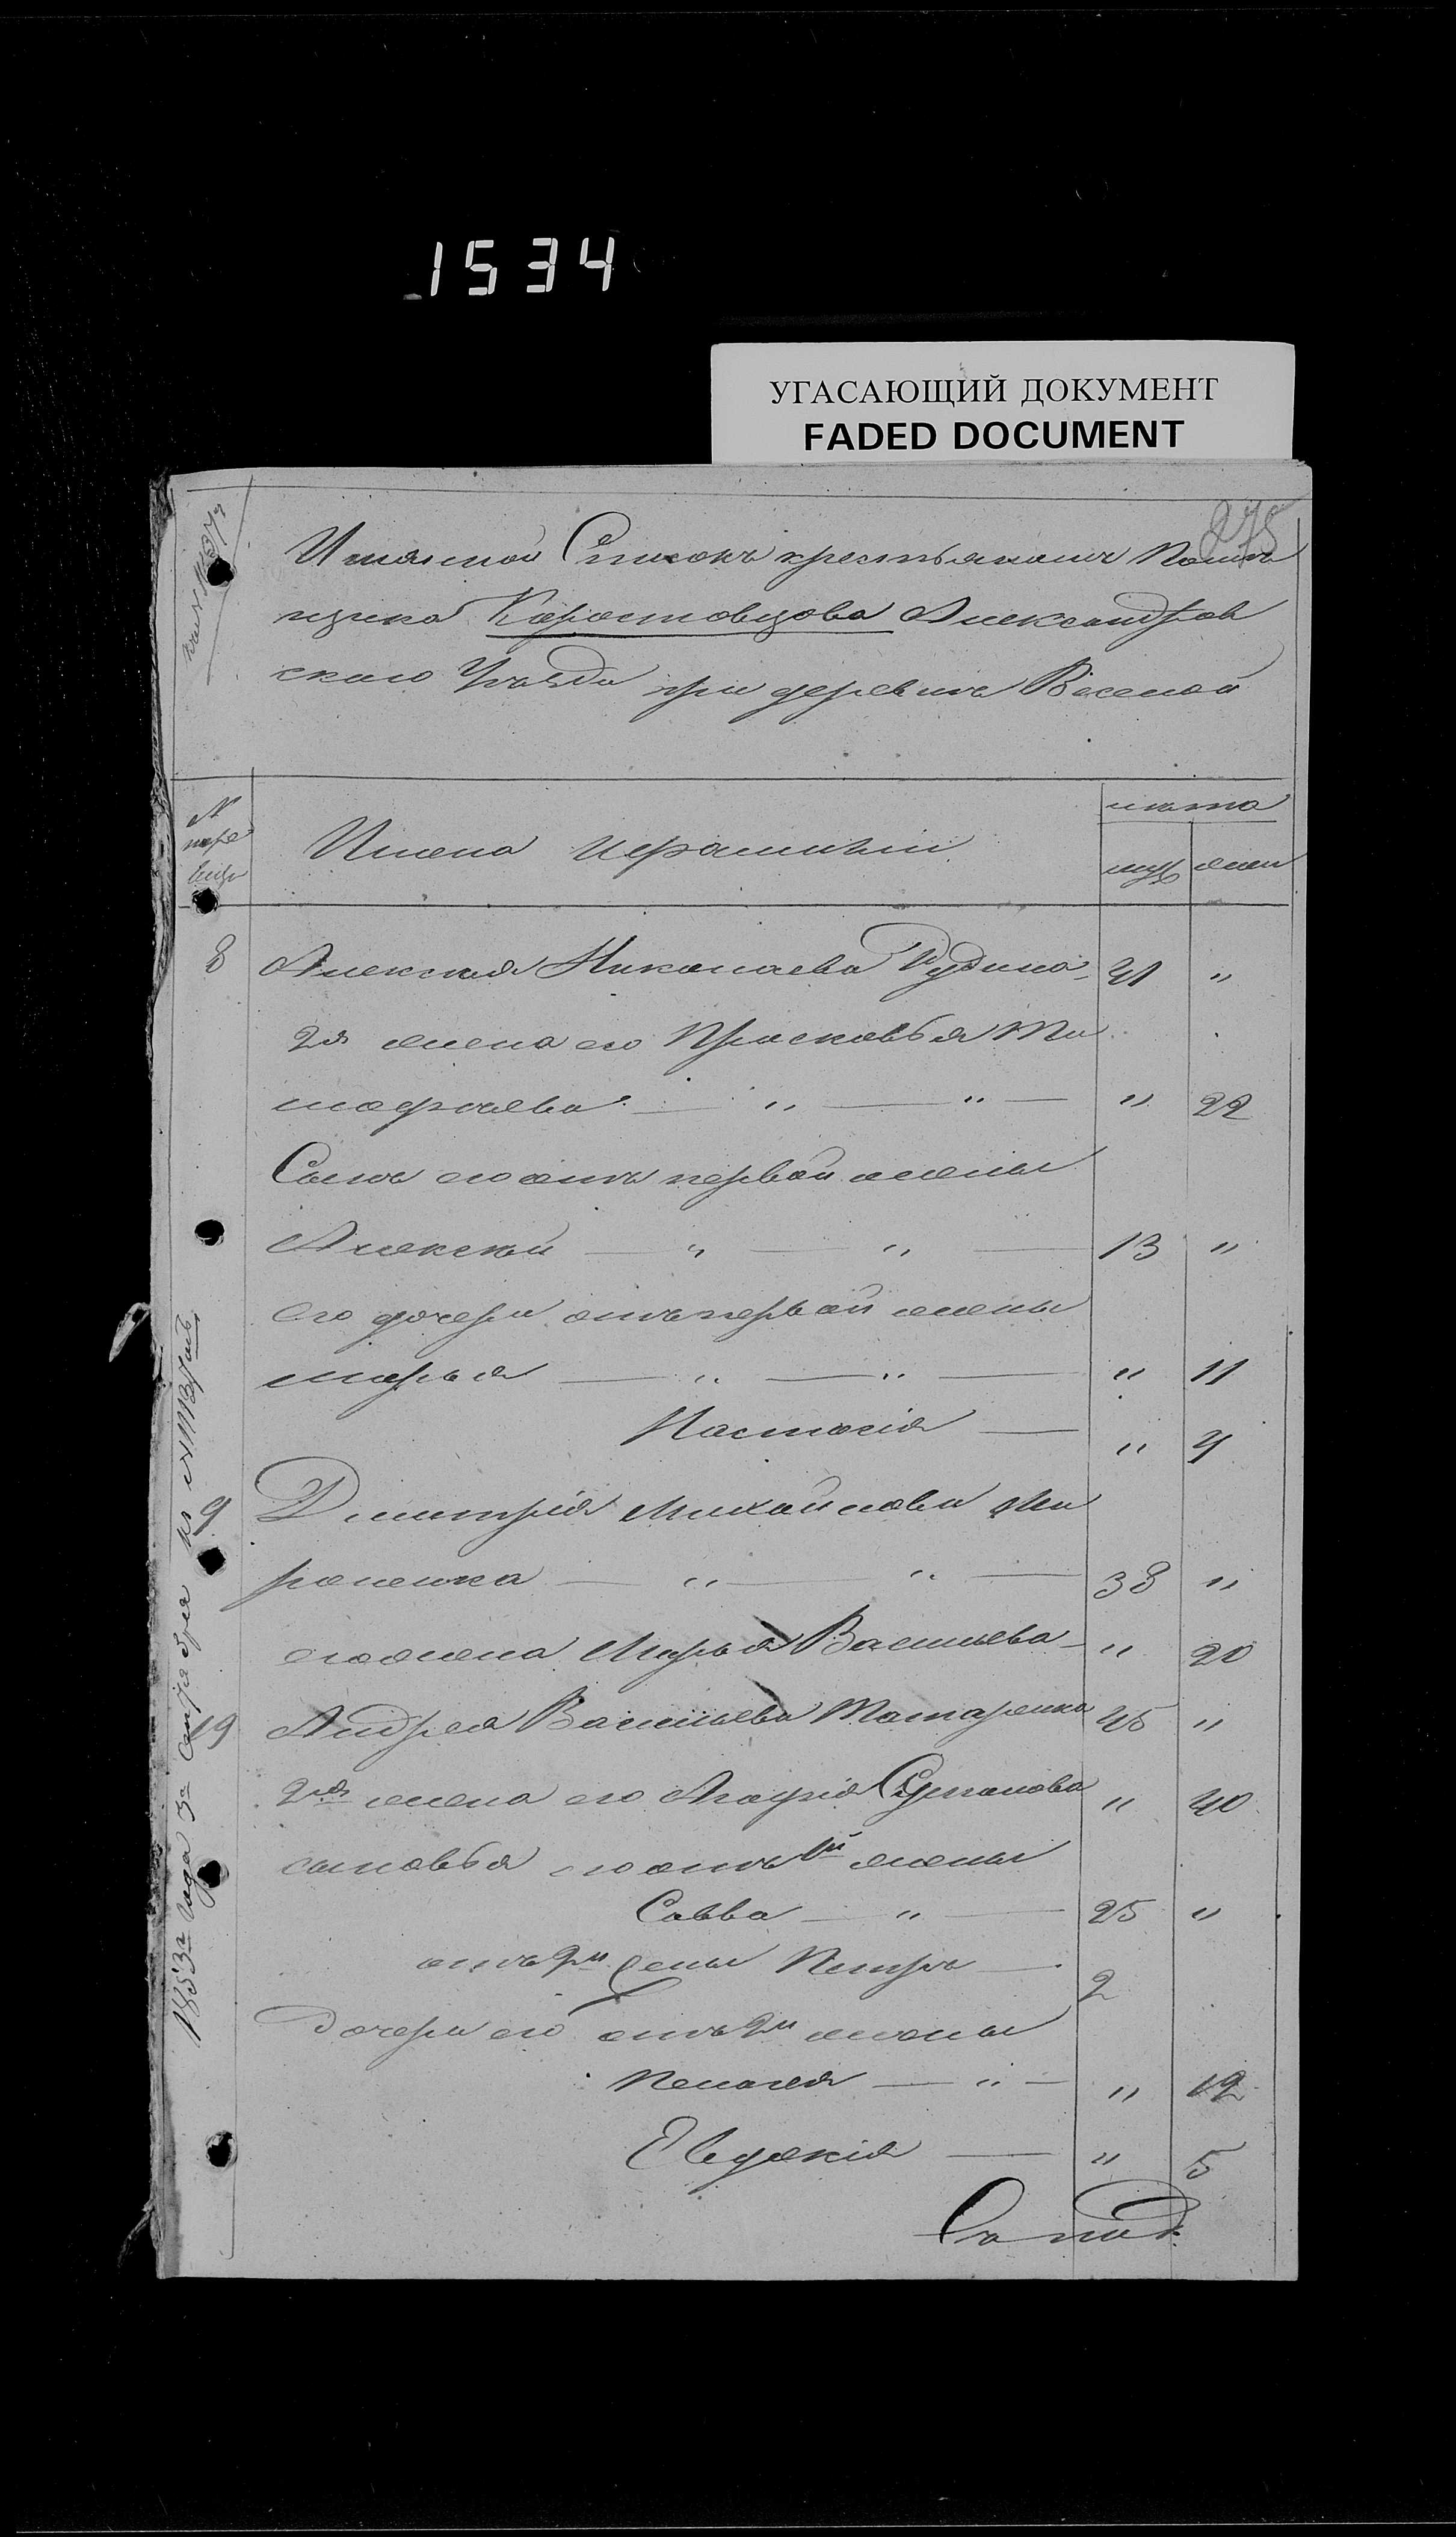 1534
УГАСАЮЩИЙ ДОКУМЕНТ
FADED DOCUMENT
275
Имянной Списокъ крестьянамъ Помѣ
щика Коростовцова Александров
скаго Уѣзда при деревнѣ Веселой
№
реви
Имена и фамилии
лѣта
муж
жен
8 Алексея Николаева Рудина 41 "
2я жена его Прасковья Ти
мофѣева " " " 22
Сынъ его отъ первой жены
Алексей " " 13 "
его дочери отъ первой жены
марья " " " 11
Настасія " 4
9 Дмитрія Михайлова Ми
роненка " " 38 "
его жена Марья Васильева " 20
19 Андрея Васильева Татаренка 45 "
2я жена его Агафія " 40
сыновья его отъ 1й жены
Савва " 25 "
отъ 2й жены Петръ 2
Дочери его отъ 2й жены
Пелагея " " 12
Евдокія " 5
1853го года 3го Октября